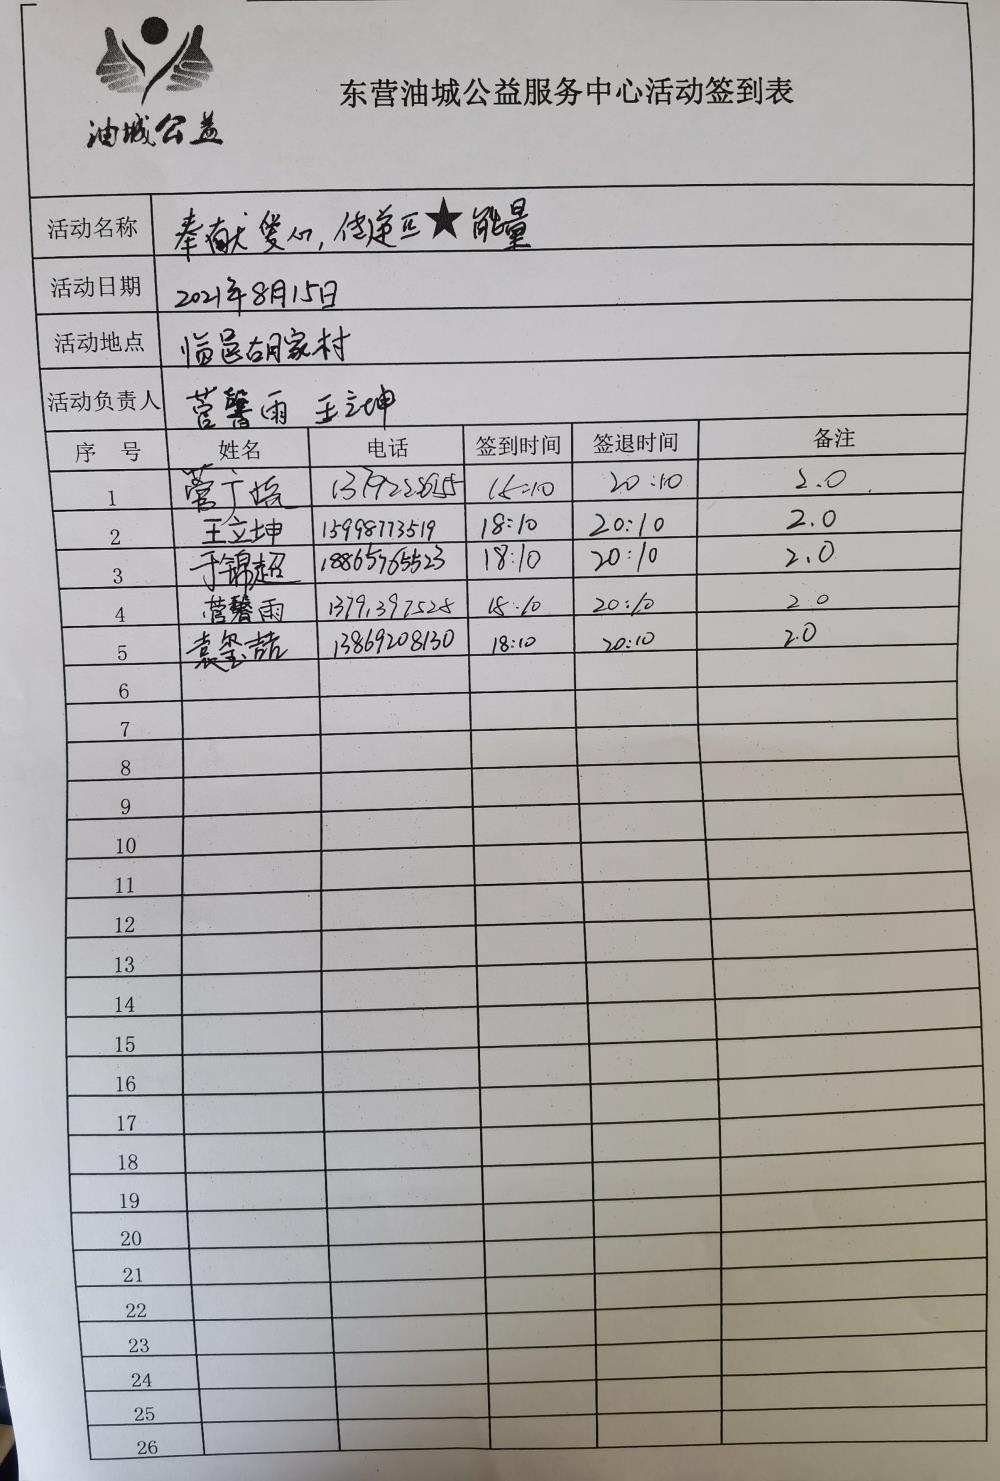 油城公益
东营油城公益服务中心活动签到表
活动名称 奉献爱心,传递正★能量
活动日期 2021年8月15日
活动地点 临邑胡家村
活动负责人 菅馨雨 王立坤
序号 姓名 电话 签到时间 签退时间 备注
1 菅 20:10 2.0
2 王立坤 15998773519 18:10 20:10 2.0
3 于锦超 18865765523 18:10 20:10 2.0
4 菅馨雨 20:10 2.0
5 袁玺喆 13869208130 18:10 20:10 2.0
6
7
8
9
10
11
12
13
14
15
16
17
18
19
20
21
22
23
24
25
26